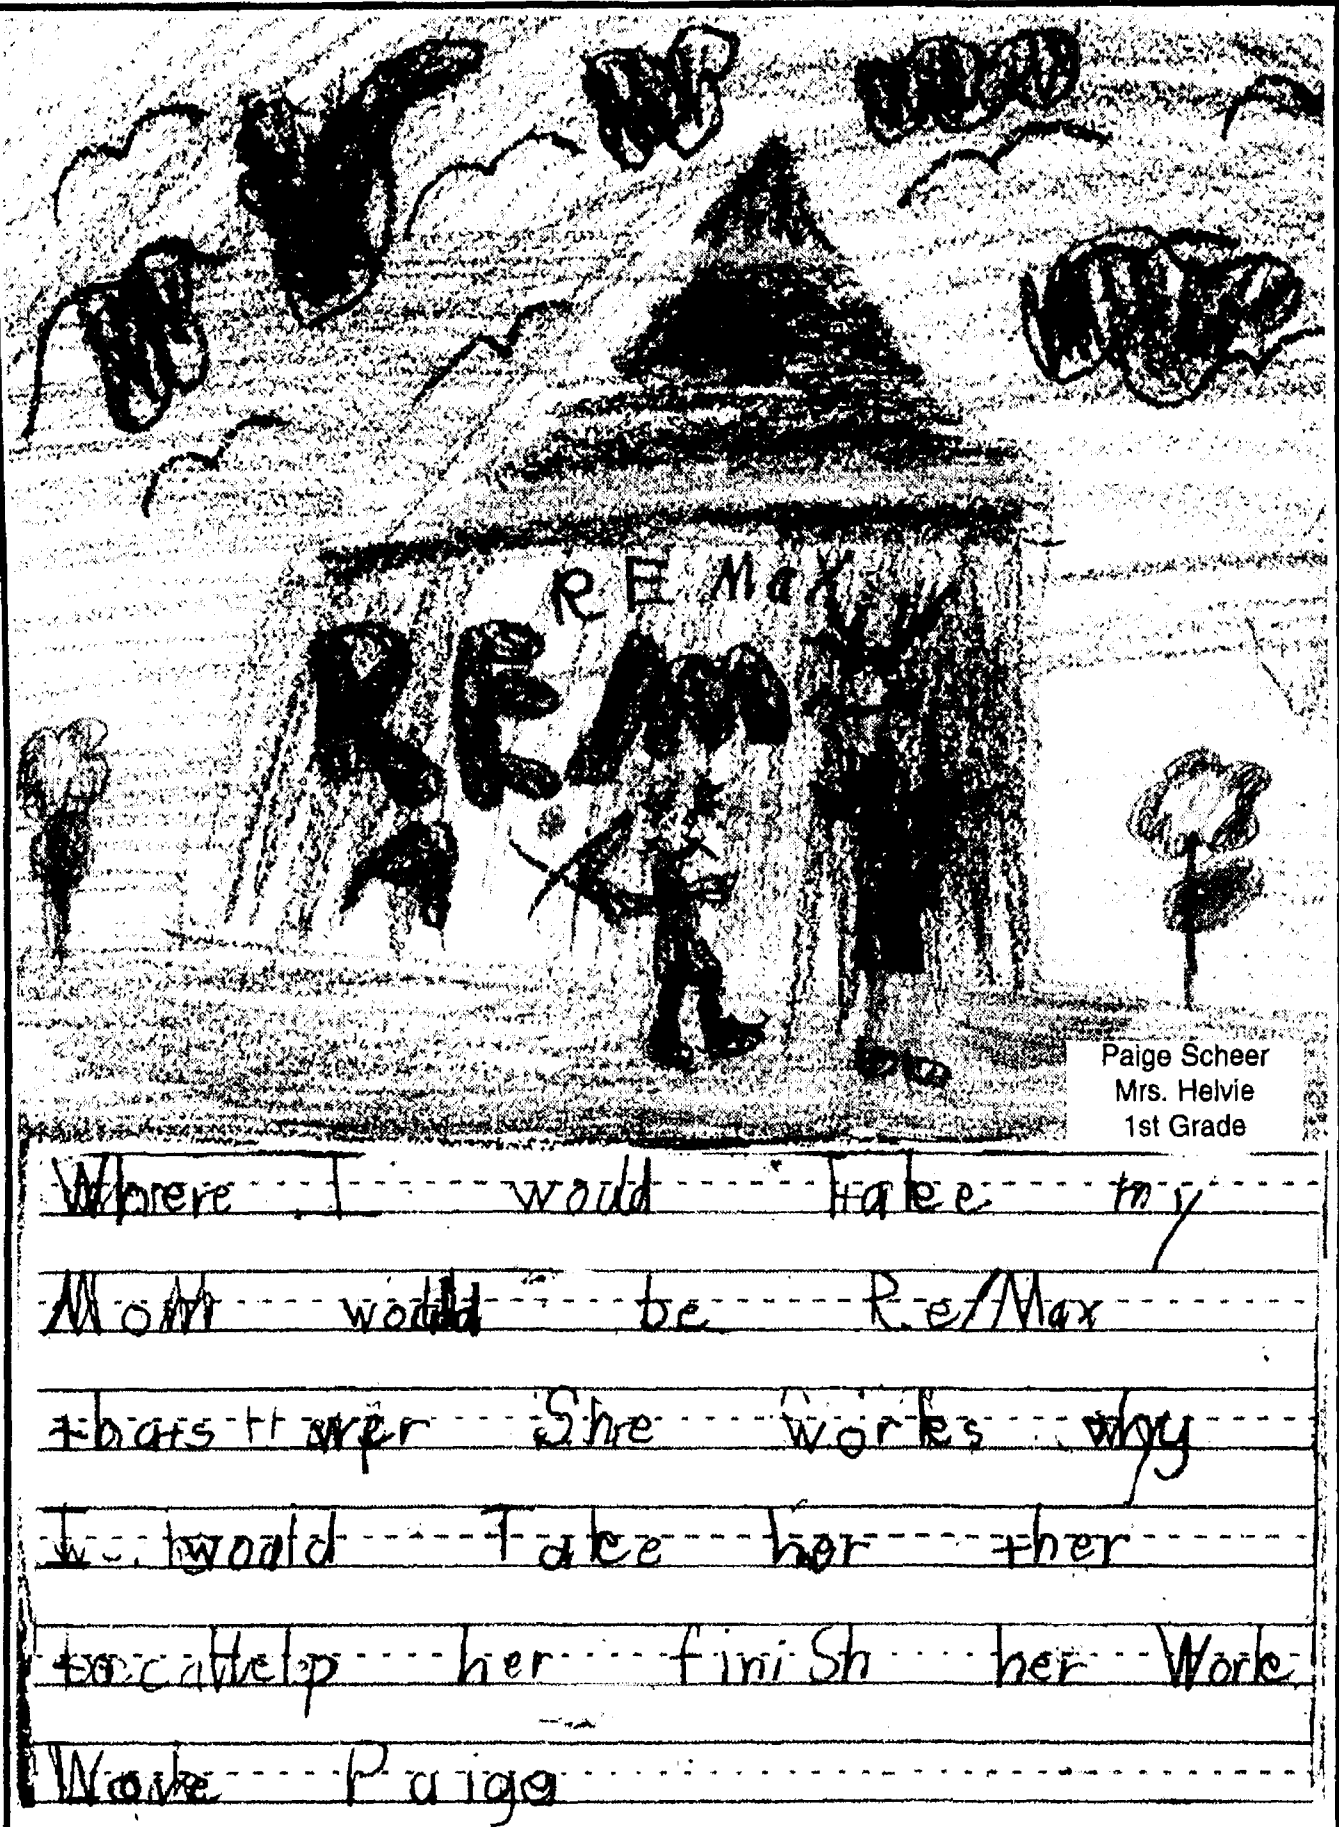 RE Max
REM
A X
Paige Scheer
Mrs. Helvie
1st Grade
Where I would take my
Mom would be Re/Max
thats wer She works why
I would Take her ther
to Help her finiSh her Work
Paige